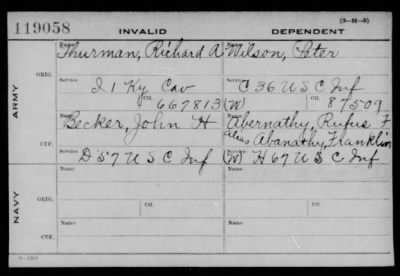 119058
INVALID
DEPENDENT
(3-M-5)
ARMY
ORIG.
Name
Thurman, Richard A
Name
Wilson, Peter
Service
I 1 Ky Cav
Service
C 36 U S C Inf
Ctf.
667813 (W)
Ctf.
87509
CTF.
Name
Becker, John H
Name
Abernathy, Rufus F
Alias Abanathy, Franklin
Service
D 57 U S C Inf
Service
(W) H 67 U S C Inf
NAVY
ORIG.
Name
Ctf.
Name
Ctf.
CTF.
Name
Name